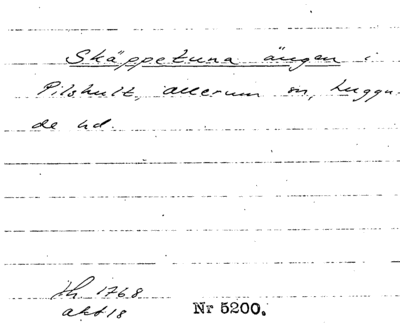 Skäppetuna ängen i
Pilshult, Allerum sn, Luggu-
de hd.
Lh 1768
akt 18 Nr 5200.